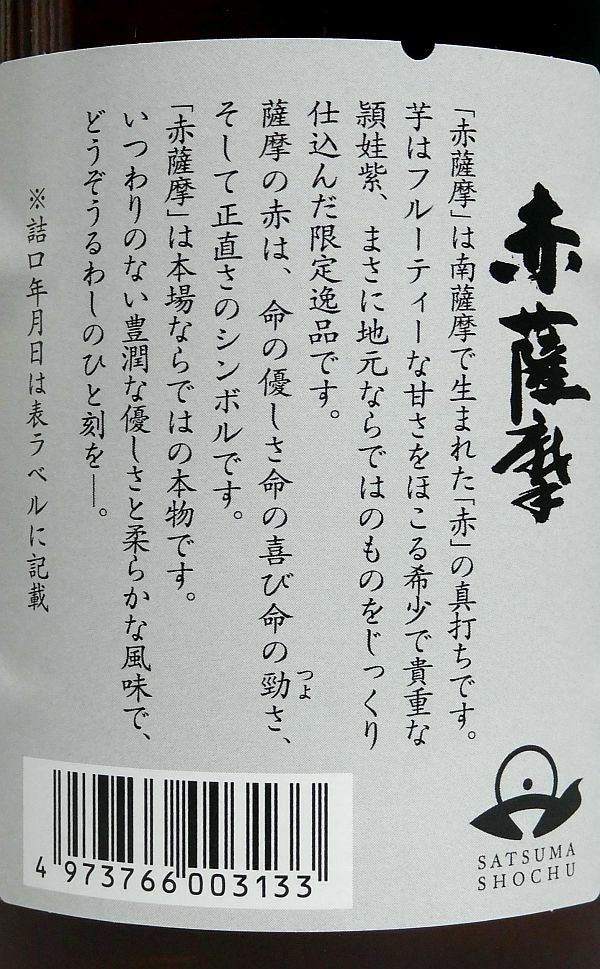 赤薩摩
「赤薩摩」は南薩摩で生まれた「赤」の真打ちです。
芋はフルーティーな甘さをほこる希少で貴重な
頴娃紫、まさに地元ならではのものをじっくり
仕込んだ限定逸品です。
薩摩の赤は、命の優しさ命の喜び命の勁さ、
つよ
そして正直さのシンボルです。
「赤薩摩」は本場ならではの本物です。
いつわりのない豊潤な優しさと柔らかな風味で、
どうぞうるわしのひと刻を―。
※詰口年月日は表ラベルに記載
SATSUMA
SHOCHU
4 973766 003133